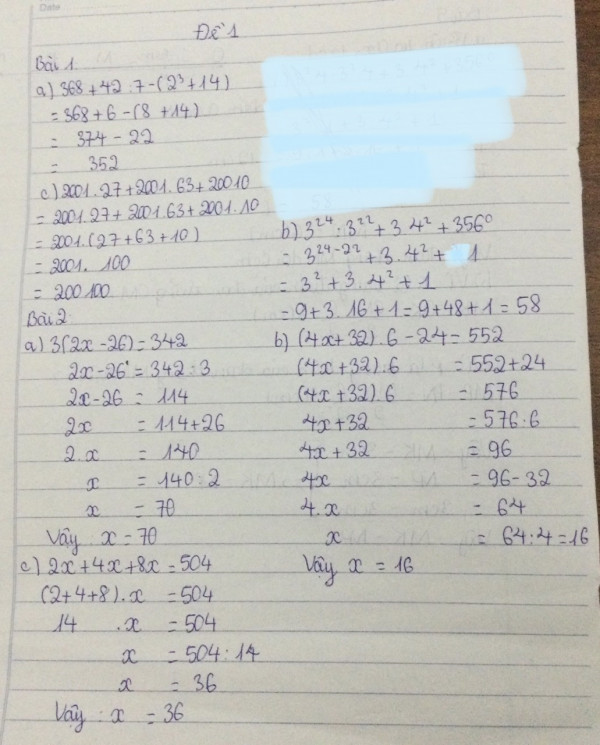 Date
Đề 1
Bài 1
a) 368 + 42 : 7 - (2³ + 14)
= 368 + 6 - (8 + 14)
= 374 - 22
= 352
c) 2001.27 + 2001.63 + 20010
= 2001.27 + 2001.63 + 2001.10
= 2001.(27 + 63 + 10)
= 2001. 100
= 200100
b) 3²⁴ : 3²² + 3.4² + 356⁰
= 3²⁴⁻²² + 3.4² + 1
= 3² + 3.4² + 1
= 9 + 3.16 + 1 = 9 + 48 + 1 = 58
Bài 2
a) 3(2x - 26) = 342
2x - 26 = 342 : 3
2x - 26 = 114
2x = 114 + 26
2.x = 140
x = 140 : 2
x = 70
Vậy x = 70
b) (4x + 32).6 - 24 = 552
(4x + 32).6 = 552 + 24
(4x + 32).6 = 576
4x + 32 = 576 : 6
4x + 32 = 96
4x = 96 - 32
4.x = 64
x = 64 : 4 = 16
Vậy x = 16
c) 2x + 4x + 8x = 504
(2 + 4 + 8).x = 504
14 .x = 504
x = 504 : 14
x = 36
Vậy : x = 36